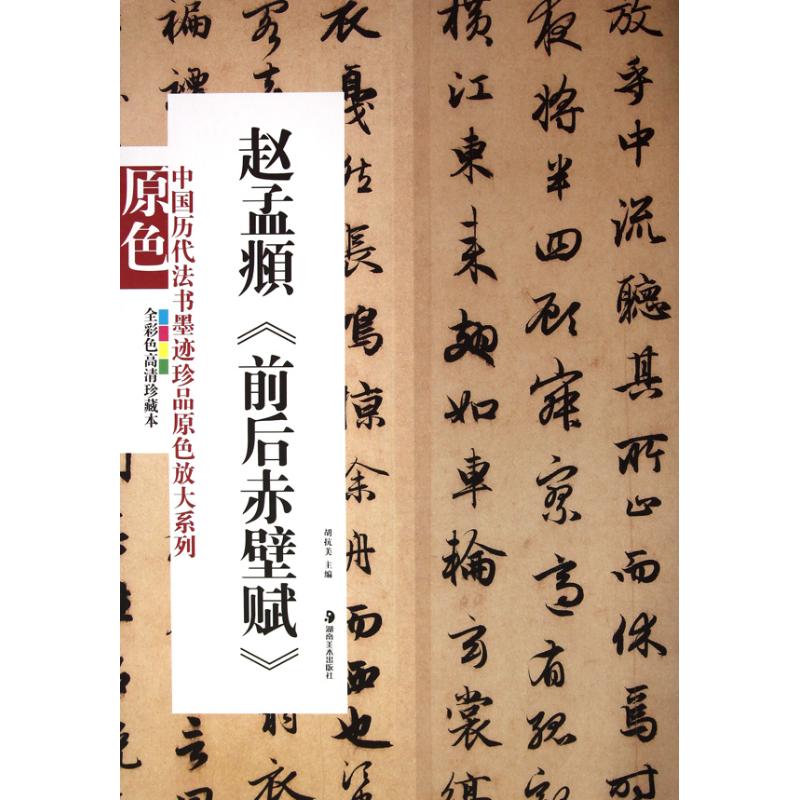 赵孟頫《前后赤壁赋》
中国历代法书墨迹珍品原色放大系列
原色
全彩色高清珍藏本
胡抗美 主编
湖南美术出版社
放乎中流聽其所止而休焉時
夜將半四顧寂寥適有孤
橫江東来翅如車輪玄裳縞
衣戛然長鳴掠余舟而西也
羽衣